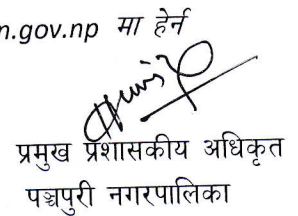 n.gov.np मा हेर्न
प्रमुख प्रशासकीय अधिकृत
पञ्चपुरी नगरपालिका